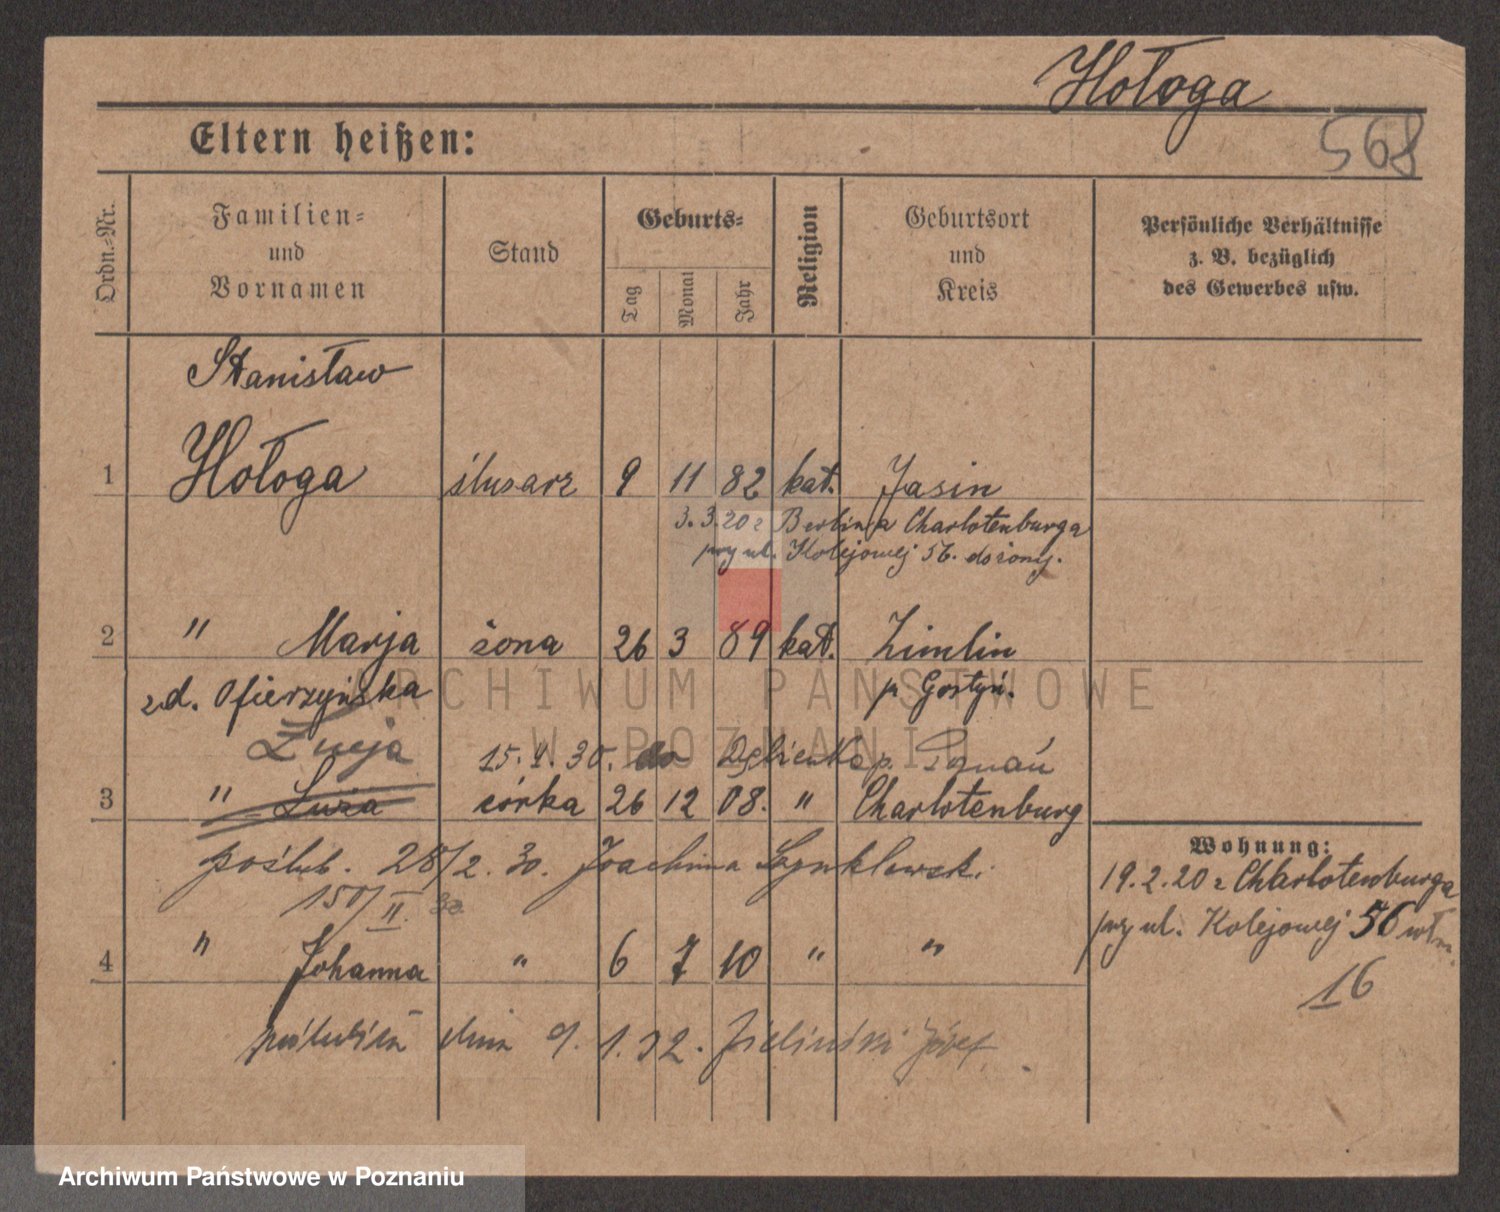 Hołoga
568
Eltern heißen:
Ordn.-Nr.
Familien- und Vornamen
Stand
Geburts-
Tag
Monat
Jahr
Religion
Geburtsort und Kreis
Persönliche Verhältnisse z. B. bezüglich des Gewerbes usw.
Stanisław
1 Hołoga ślusarz 9 11 82 kat. Jasin
3.3.20 z Berlina Charlotenburga
przy ul. Kolejowej 56.
2 " Marja żona 26 3 89 kat. Zimlin
zd. Ofierzyńska p. Gostyń.
15. 4. 30. do
3 " Luża córka 26 12 08. " Charlotenburg
poślub. 28/2. 30. Joachima
150/II. 30
4 " Johanna " 6 7 10 " "
dnia 9. 1. 32. Zieliński Józef
Wohnung:
19.2.20 z Charlotenburga
przy ul. Kolejowej 56
16
ARCHIWUM PAŃSTWOWE
W POZNANIU
Archiwum Państwowe w Poznaniu